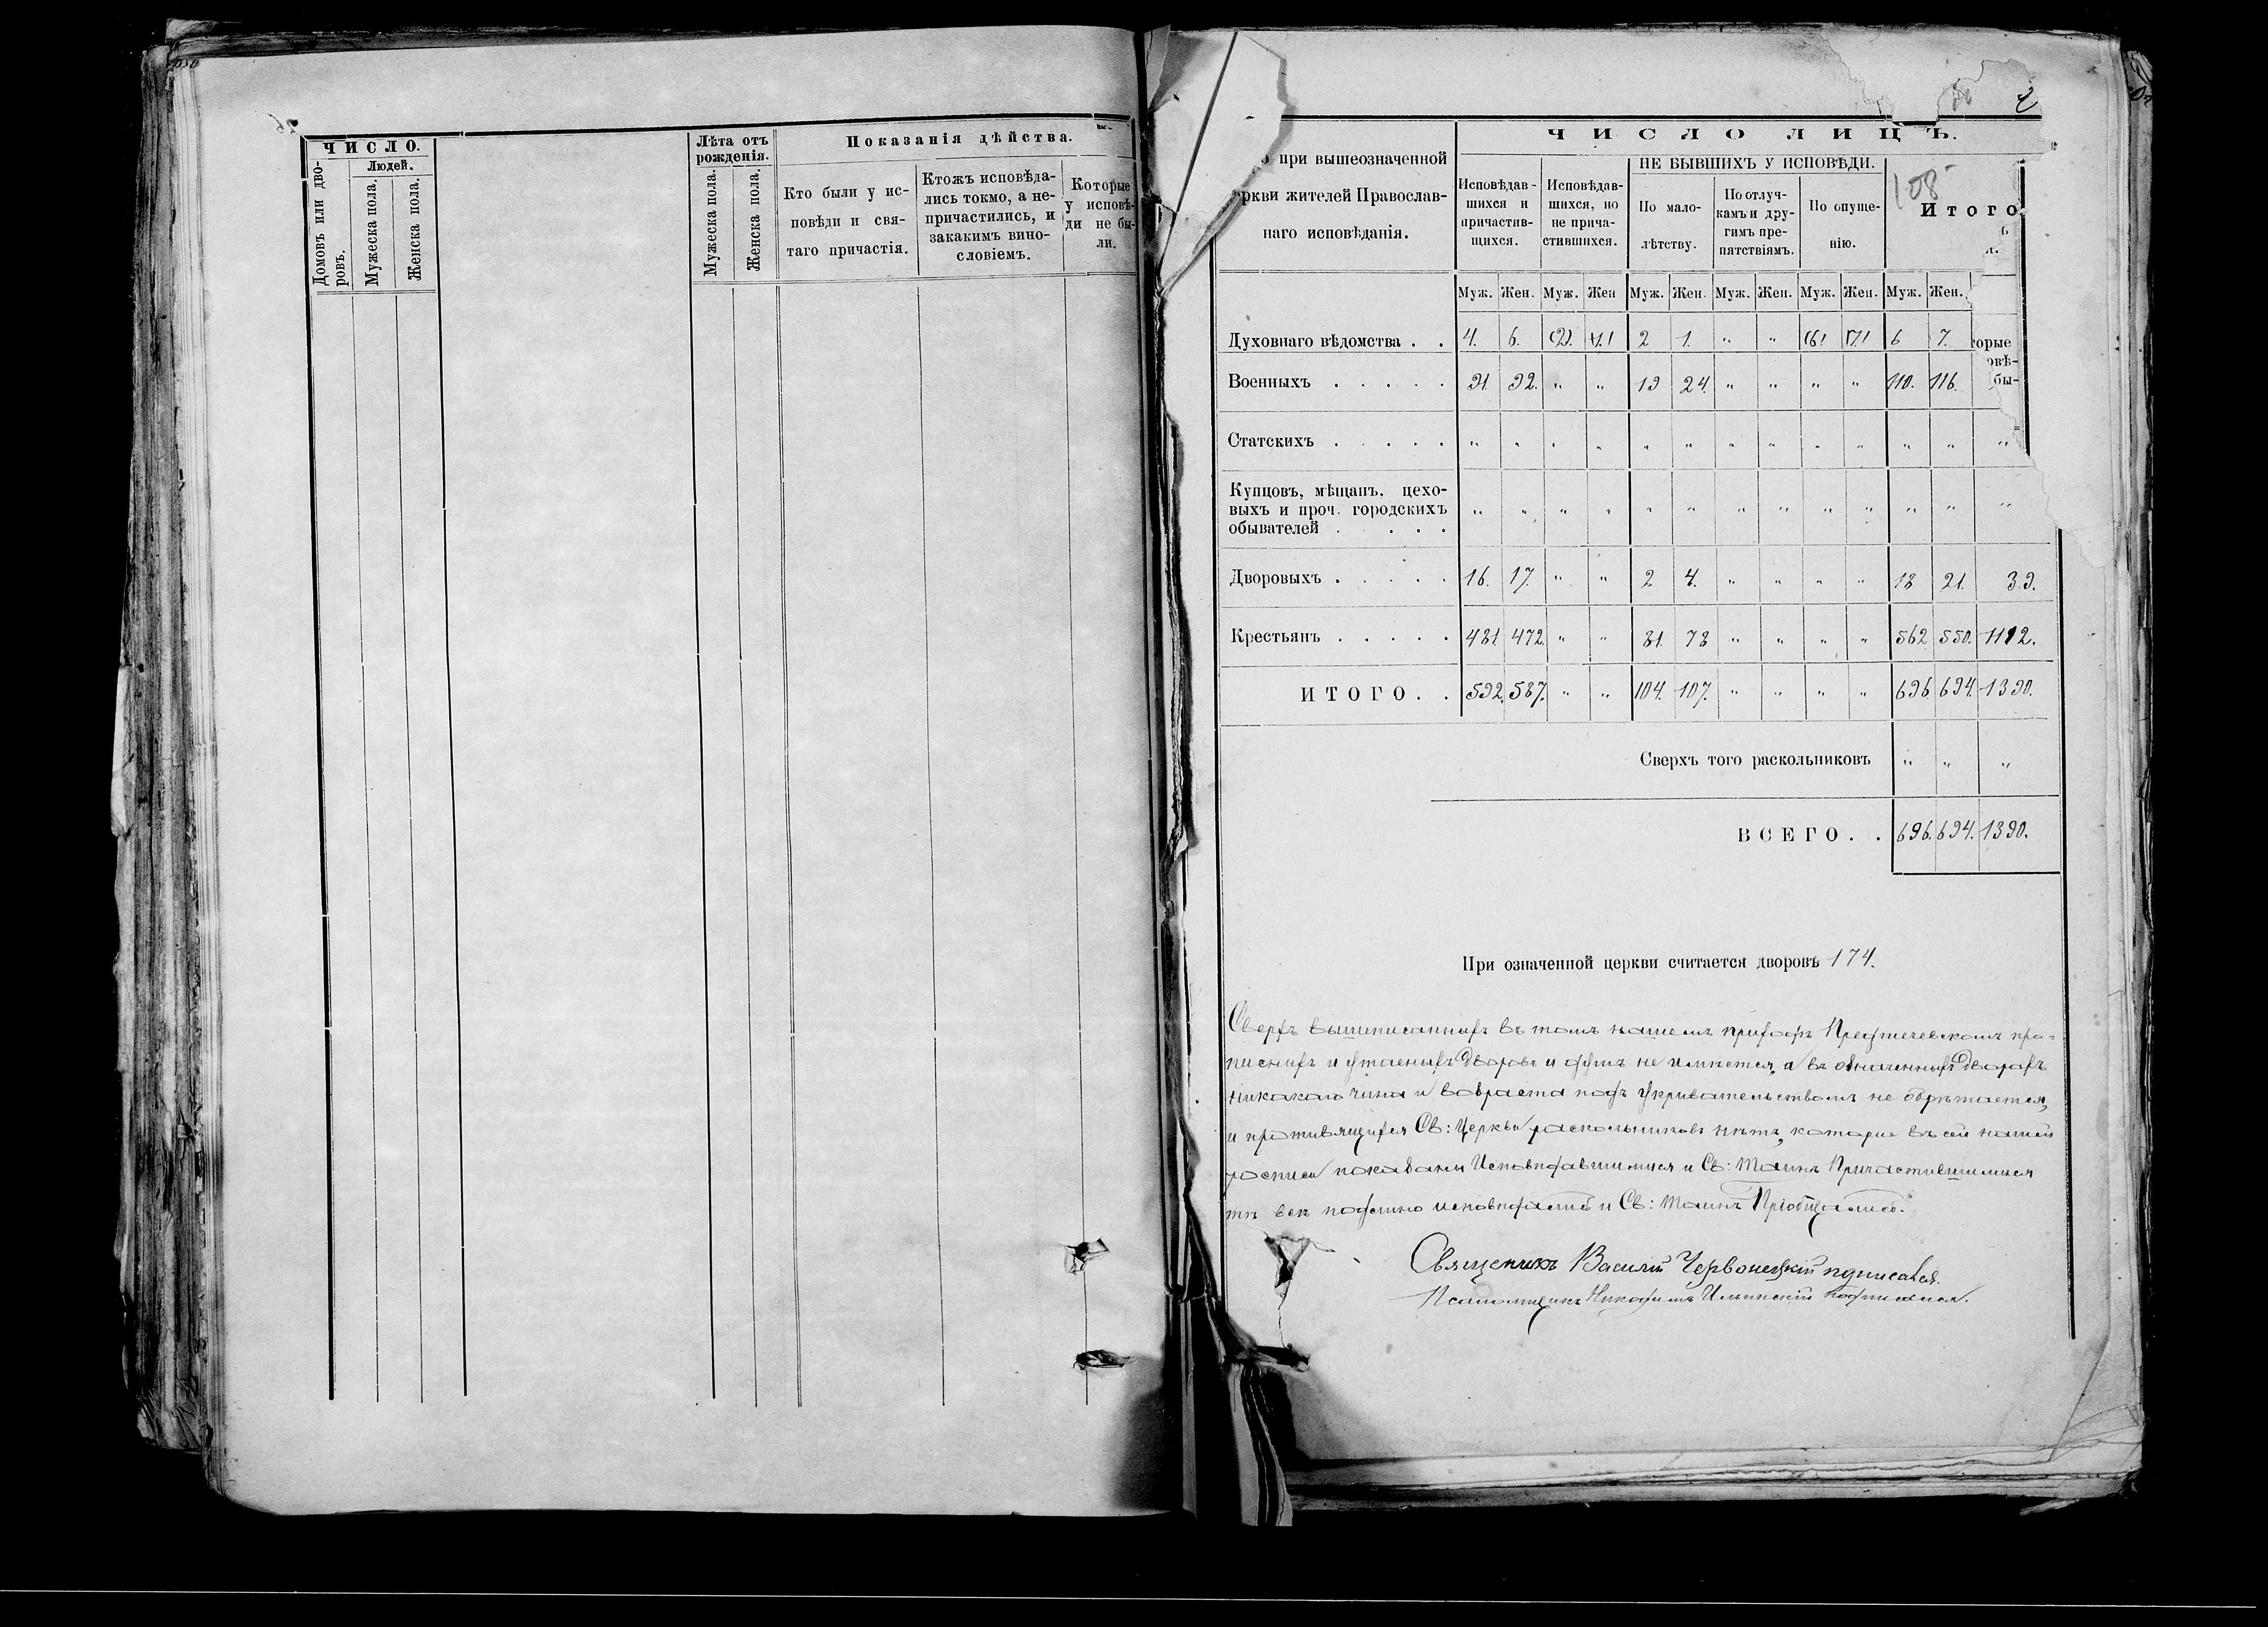 ЧИСЛО.
Людей.
Домовъ или дво-
ровъ.
Мужеска пола.
Женска пола.
Лѣта отъ
рожденія.
Мужеска пола.
Женска пола.
Показанія дѣйства.
Кто были у ис-
повѣди и свя-
таго причастія.
Ктожъ исповѣда-
лись токмо, а не-
причастились, и
закакимъ вино-
словіемъ.
Которые
у исповѣ-
ди не бы-
ли.
при вышеозначенной
жителей Православ-
наго исповѣданія.
ЧИСЛО ЛИЦЪ.
Исповѣдав-
шихся и
причастив-
щихся.
Исповѣдав-
шихся, но
не прича-
стившихся.
НЕ БЫВШИХЪ У ИСПОВѢДИ.
По мало-
лѣтству.
По отлуч-
камъ и дру-
гимъ пре-
пятствіямъ.
По опуще-
нію.
108
Итого
Муж. Жен. Муж. Жен Муж. Жен. Муж. Жен. Муж. Жен. Муж. Жен.
Духовнаго вѣдомства . . 4. 6. 2 1. " " 6 7.
Военныхъ . . . . . 91. 92. " " 19 24. " " " " 110. 116.
Статскихъ . . . . . " " " " " " " " " " " " "
Купцовъ, мѣщанъ, цехо-
выхъ и проч. городскихъ
обывателей . . . . . " " " " " " " " " " " " "
Дворовыхъ . . . . . 16. 17. " " 2 4. " " " " 18 21. 39.
Крестьянъ . . . . . 481. 472. " " 81. 78 " " " " 562 550. 1112.
ИТОГО. . 592. 587. " " 104. 107. " " " " 696. 694. 1390.
Сверхъ того раскольниковъ " " "
ВСЕГО. . 696. 694. 1390.
При означенной церкви считается дворовъ 174.
Сверхъ вышеписанныхъ въ томъ нашемъ приходѣ Предтечевскомъ про-
писныхъ и утаеныхъ дворовъ и душъ не имѣется, а въ означенныхъ дворахъ
никакого чина и возраста подъ укривательствомъ не обрѣтается,
и противящихся Св: Церкви раскольниковъ нѣтъ, которые въ сей нашей
росписи показаны Исповѣдавшимися и Св: Таинъ Причастившимися
тѣ всѣ подлино исповѣдались и Св: Таинъ Пріобщались.
Священикъ Василій Червонецкій
Псаломщикъ Никодимъ Ильинскій подписался.